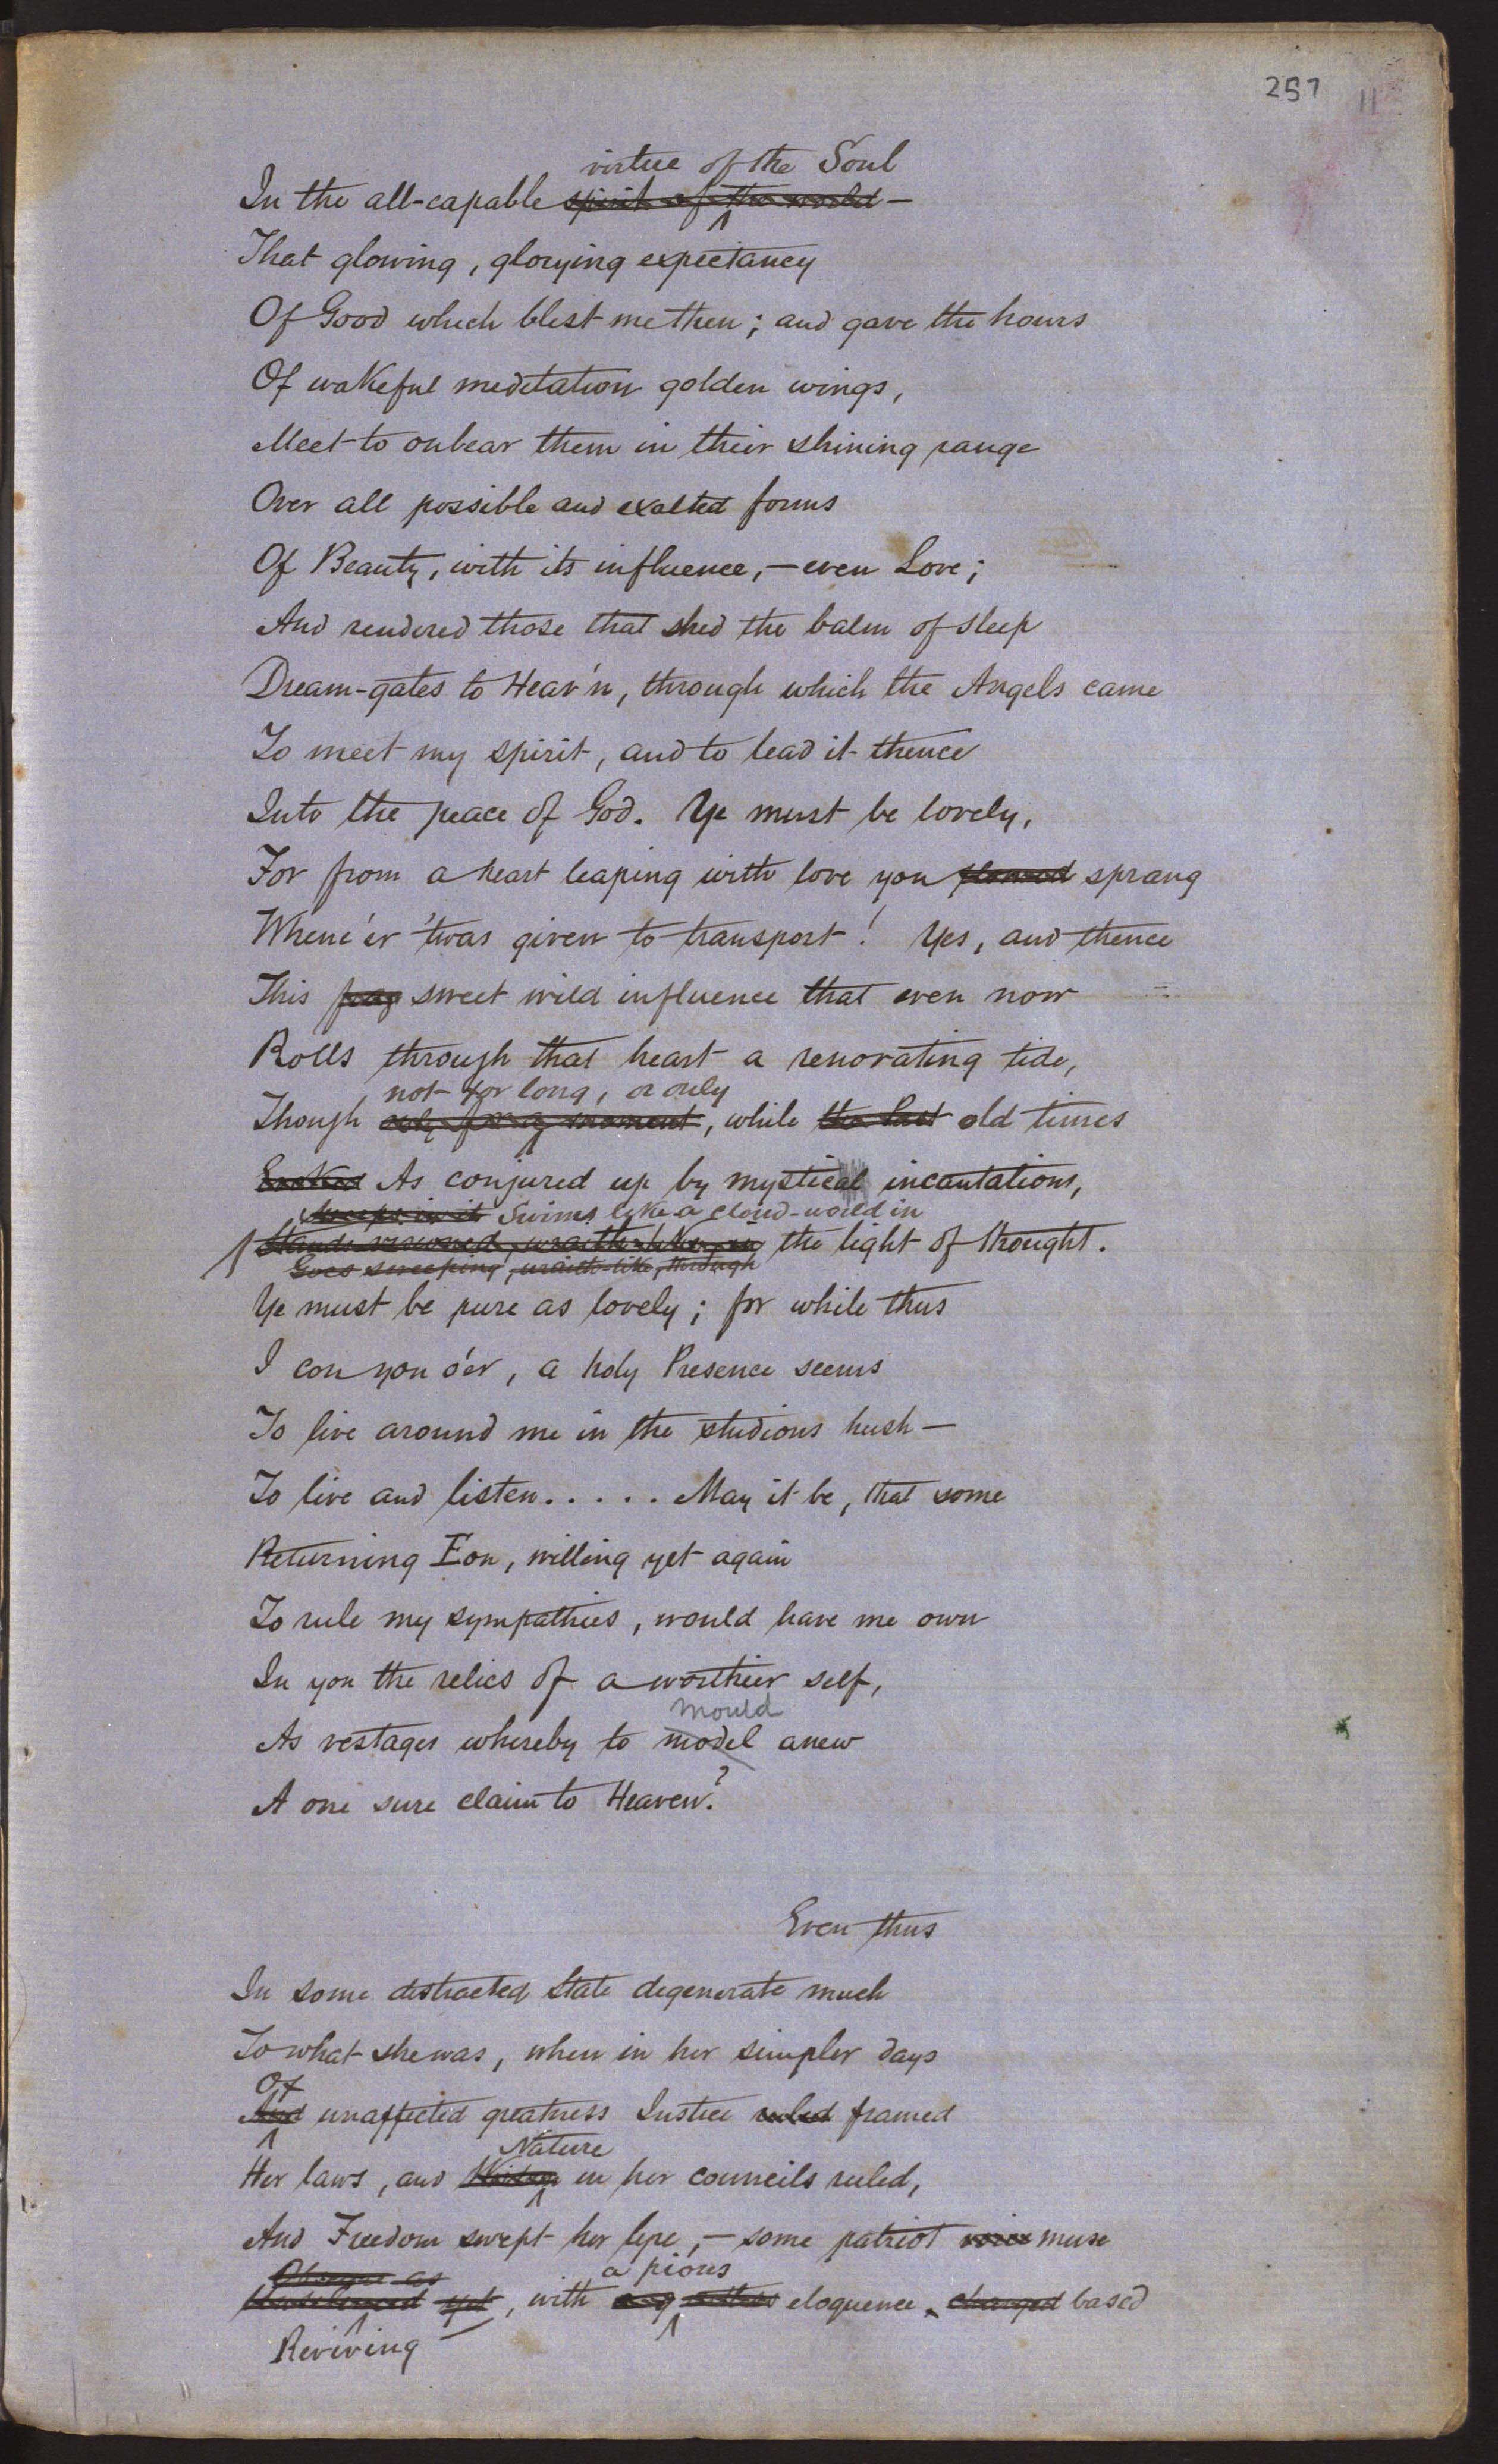 257 11
virtue of the Soul
In the all-capable spirit of the world —
That glowing, glorying expectancy
Of Good which blest me then; and gave the hours
Of wakeful meditation golden wings,
Meet to onbear them in their shining range
Over all possible and exalted forms
Of Beauty, with its influence, — even Love;
And rendered those that shed the balm of sleep
Dream-gates to Heav'n, through which the Angels came
To meet my spirit, and to lead it thence
Into the peace of God. Ye must be lovely,
For from a heart leaping with love you flowed sprang
Whene'er 'twas given to transport! Yes, and thence
This sweet wild influence that even now
Rolls through that heart a renovating tide,
not for long, or only
Though only for a moment, while the Past old times
Evoked As conjured up by mystical incantations,
Sweeps in it Swims like a cloud-world in
Stands renewed, wraith-like, in the light of thought.
Goes sweeping, wraith-like, through
Ye must be pure as lovely; for while thus
I con you o'er, a holy Presence seems
To live around me in the studious hush —
To live and listen..... May it be, that some
Returning Eon, willing yet again
To rule my sympathies, would have me own
In you the relics of a worthier self,
mould
As vestages whereby to model anew
A one sure claim to Heaven?
Even thus
In some distracted State degenerate much
To what she was, when in her simpler days
Of
And unaffected greatness Justice ruled framed
Nature
Her laws, and in her councils ruled,
And Freedom swept her lyre, — some patriot voice muse
a pious
yet, with eloquence, charged based
Reviving